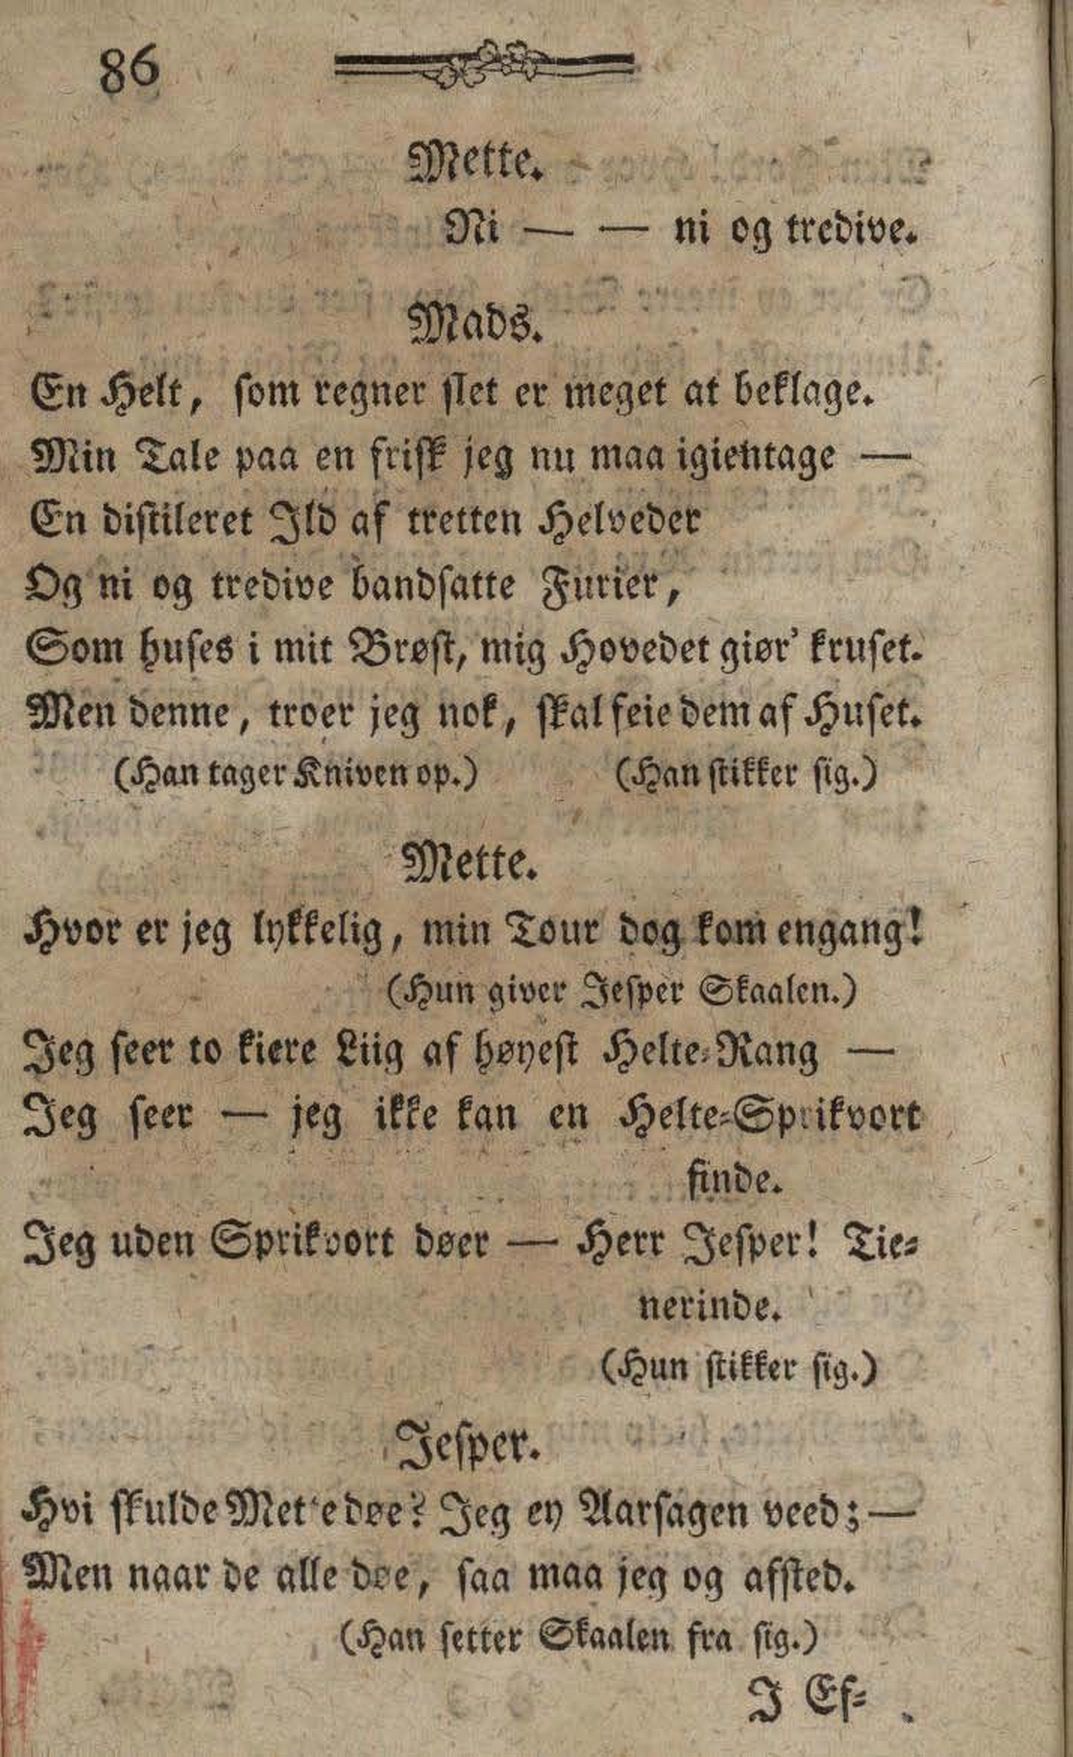 86
Mette.
Ni — — ni og tredive.
Mads.
En Helt, som regner slet er meget at beklage.
Min Tale paa en frisk jeg nu maa igientage —
En distileret Ild af tretten Helveder
Og ni og tredive bandsatte Furier,
Som huses i mit Brøst, mig Hovedet giør' kruset.
Men denne, troer jeg nok, skal feie dem af Huset.
(Han tager Kniven op.) (Han stikker sig.)
Mette.
Hvor er jeg lykkelig, min Tour dog kom engang!
(Hun giver Jesper Skaalen.)
Jeg seer to kiere Liig af høyest Helte-Rang —
Jeg seer — jeg ikke kan en Helte-Sprikvort
finde.
Jeg uden Sprikvort døer — Herr Jesper! Tie-
nerinde.
(Hun stikker sig.)
Jesper.
Hvi skulde Mette døe? Jeg ey Aarsagen veed; —
Men naar de alle døe, saa maa jeg og afsted.
(Han setter Skaalen fra sig.)
J Ef-